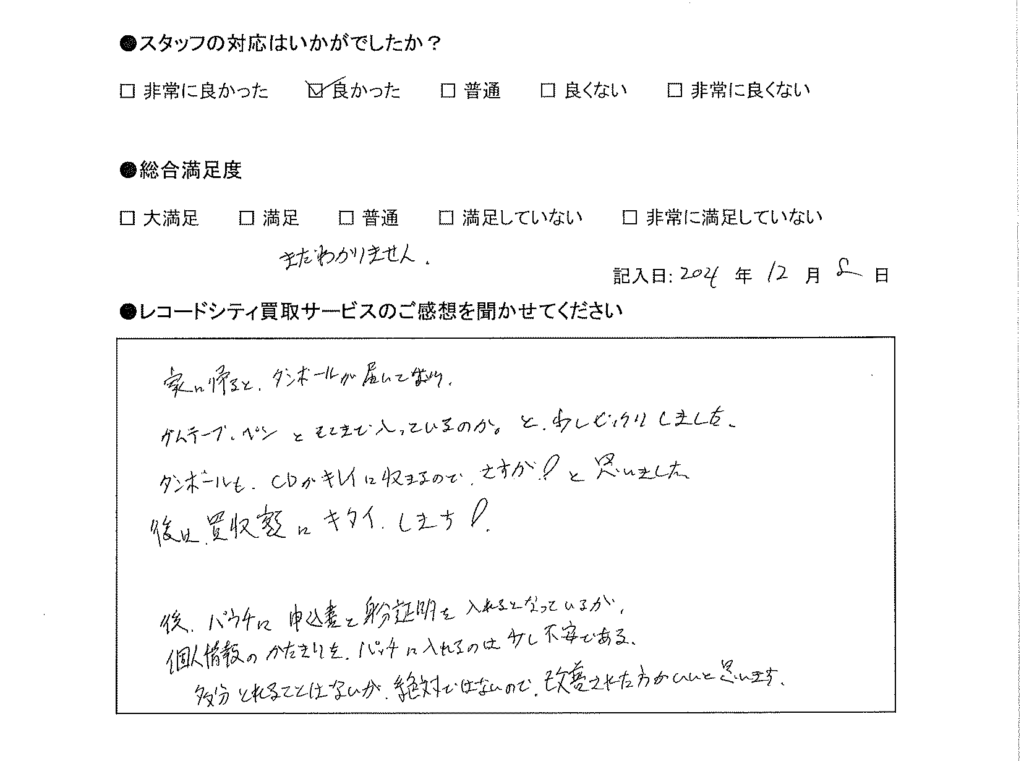 ●スタッフの対応はいかがでしたか？
□ 非常に良かった ☑ 良かった □ 普通 □ 良くない □ 非常に良くない
●総合満足度
□ 大満足 □ 満足 □ 普通 □ 満足していない □ 非常に満足していない
まだわかりません.
記入日: 2024 年 12 月 8 日
●レコードシティ買取サービスのご感想を聞かせてください
家に帰ると、ダンボールが届いており、
ガムテープ、ペン とそこまで入っているのか。と、少しビックリしました。
ダンボールも、CDがキレイに収まるので、さすが！と思いました
後は、買収額にキタイ、します！.
後、パウチに 申込書と身分証明を 入れるとなっているが、
個人情報のかたまりを、パッチに入れるのは少し不安である、
多分とれることはないが、絶対ではないので、改善された方がいいと思います、